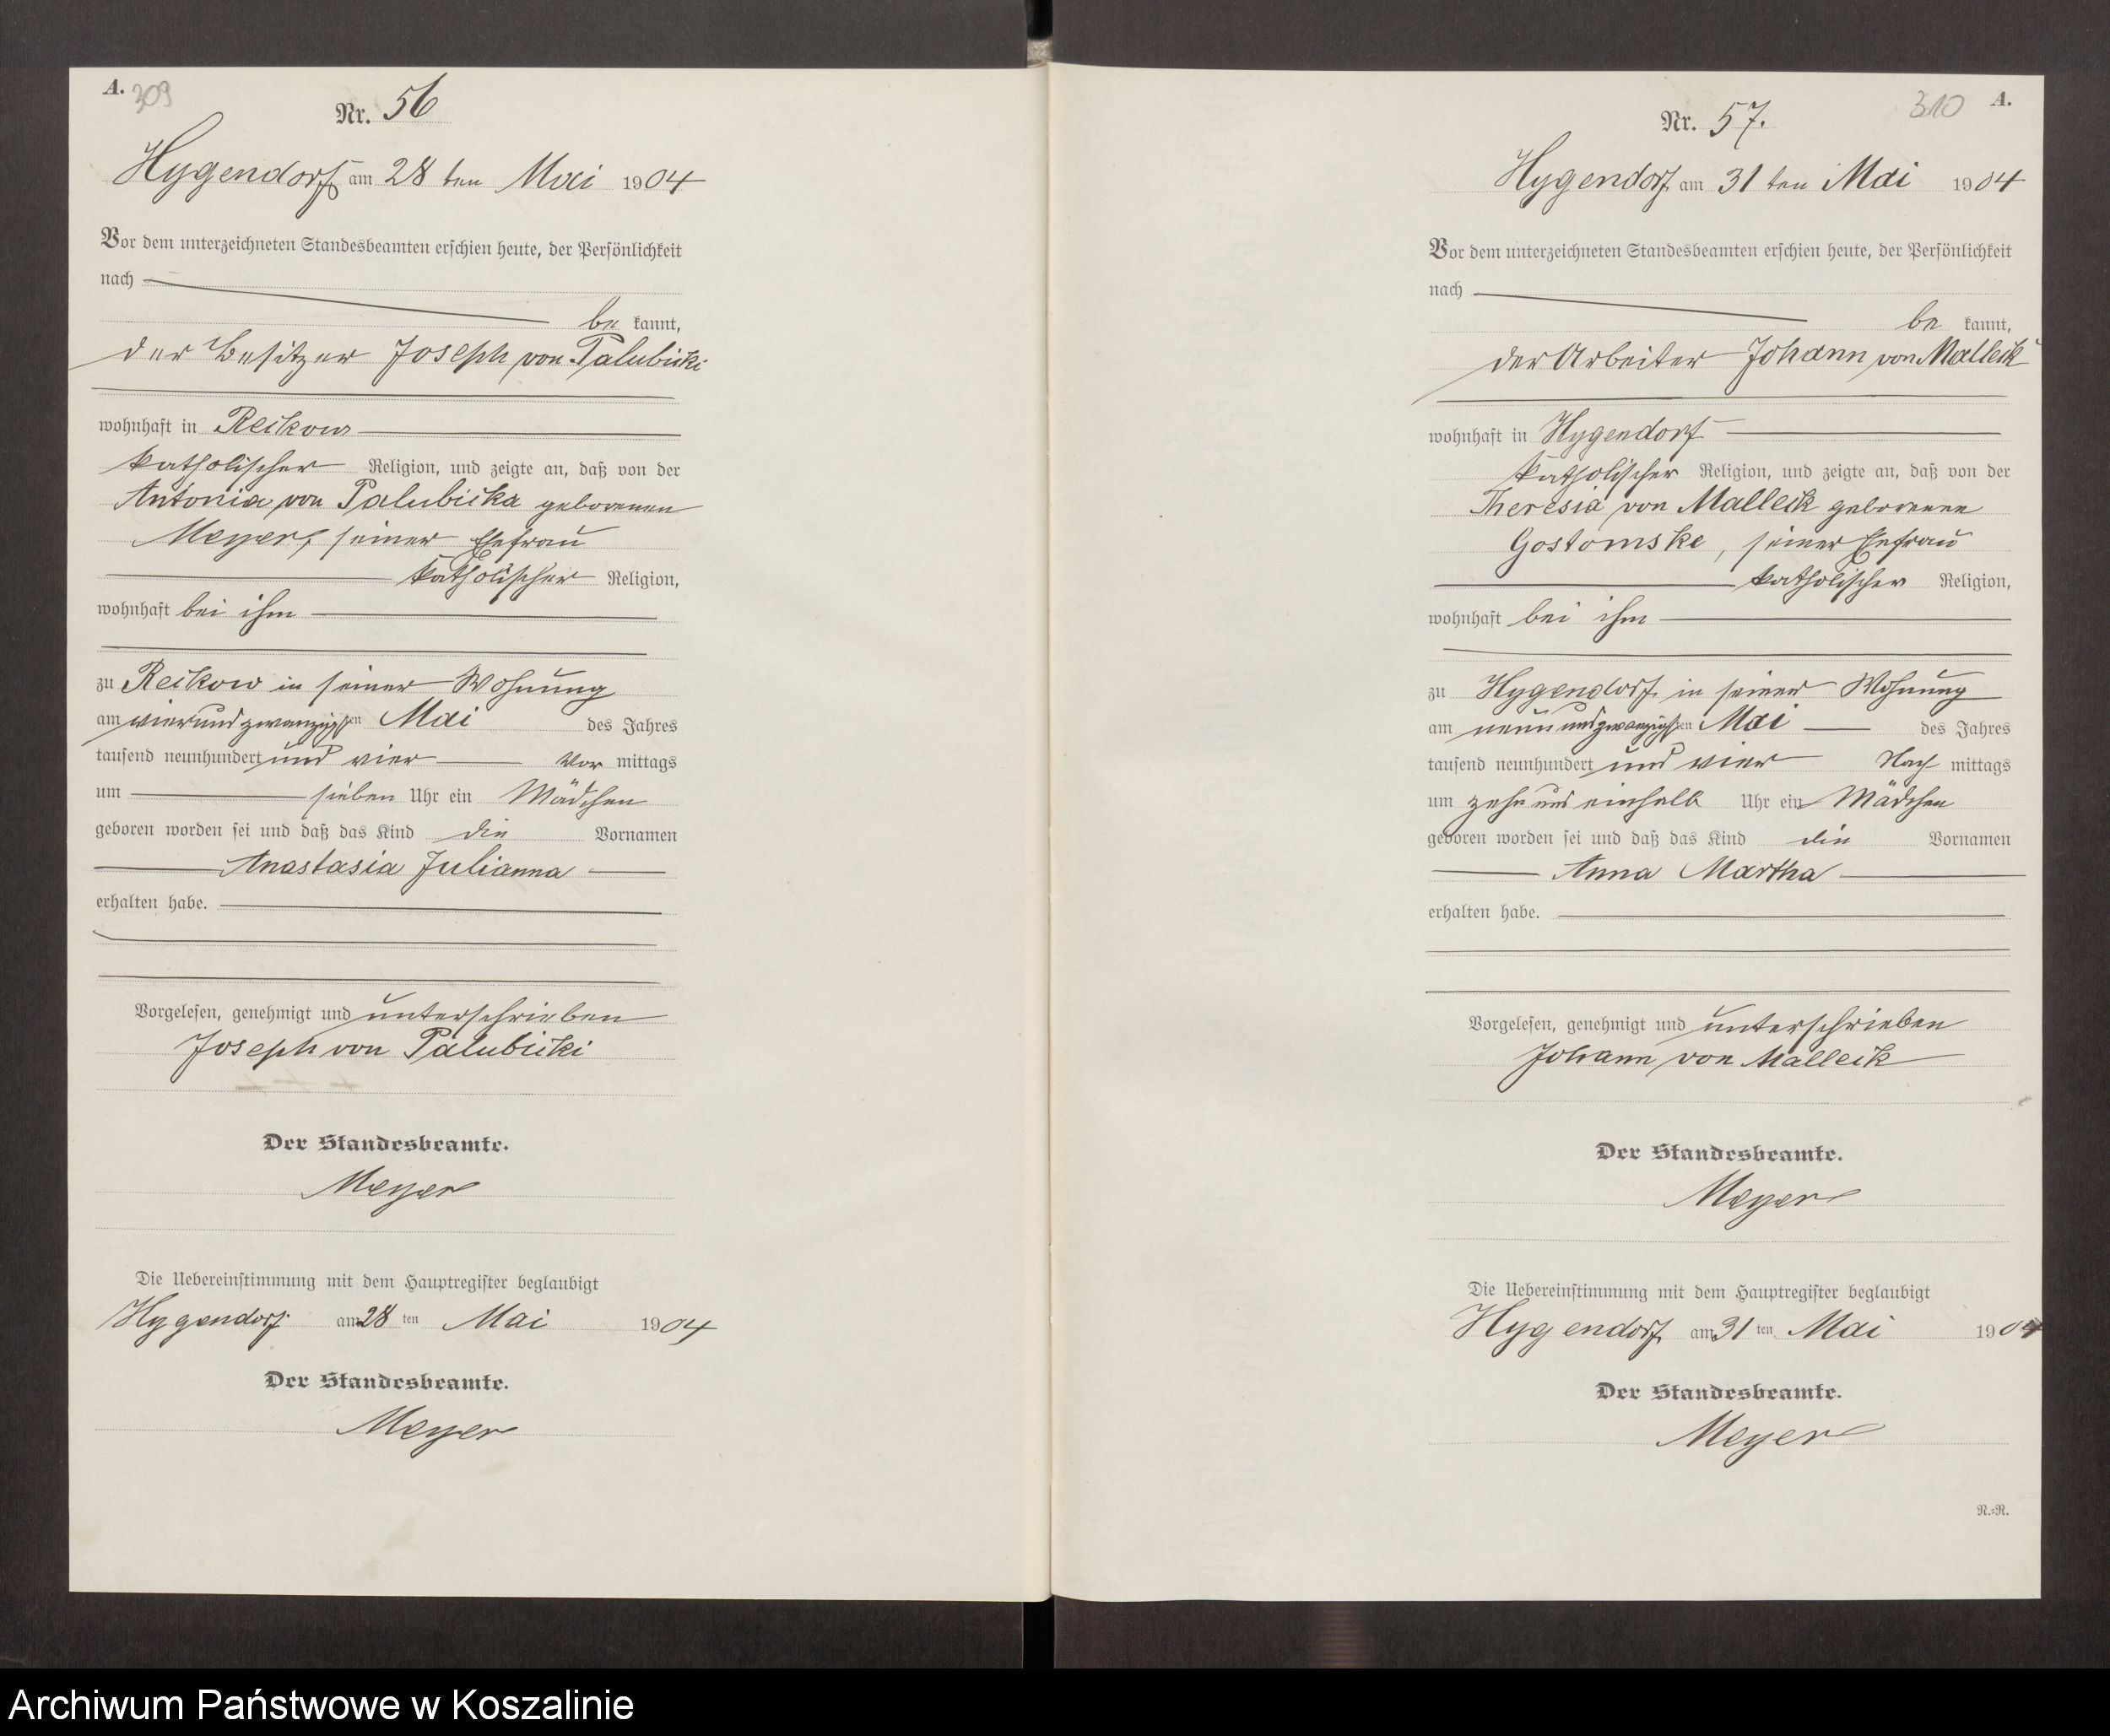 A. 309
Nr. 56
Hygendorf am 28 ten Mai 1904
Vor dem unterzeichneten Standesbeamten erschien heute, der Persönlichkeit
nach
be kannt,
der Besitzer Joseph von Palubicki
wohnhaft in Reckow
katholischer Religion, und zeigte an, daß von der
Antonia von Palubicka geborenen
Meyer, seiner Ehefrau
katholischer Religion,
wohnhaft bei ihm
zu Reckow in seiner Wohnung
am vierundzwanzigsten Mai des Jahres
tausend neunhundert und vier Vor mittags
um sieben Uhr ein Mädchen
geboren worden sei und daß das Kind die Vornamen
Anastasia Julianna
erhalten habe.
Vorgelesen, genehmigt und unterschrieben
Joseph von Palubicki
Der Standesbeamte.
Meyer
Die Uebereinstimmung mit dem Hauptregister beglaubigt
Hygendorf am 28 ten Mai 1904
Der Standesbeamte.
Meyer
310 A.
Nr. 57.
Hygendorf am 31 ten Mai 1904
Vor dem unterzeichneten Standesbeamten erschien heute, der Persönlichkeit
nach
be kannt,
der Arbeiter Johann von Malleck
wohnhaft in Hygendorf
katholischer Religion, und zeigte an, daß von der
Theresia von Malleck geborenen
Gostomske, seiner Ehefrau
katholischer Religion,
wohnhaft bei ihm
zu Hygendorf in seiner Wohnung
am neunundzwanzigsten Mai des Jahres
tausend neunhundert und vier Nach mittags
um zehn und einhalb Uhr ein Mädchen
geboren worden sei und daß das Kind die Vornamen
Anna Martha
erhalten habe.
Vorgelesen, genehmigt und unterschrieben
Johann von Malleck
Der Standesbeamte.
Meyer
Die Uebereinstimmung mit dem Hauptregister beglaubigt
Hygendorf am 31 ten Mai 1904
Der Standesbeamte.
Meyer
N.=R.
Archiwum Państwowe w Koszalinie